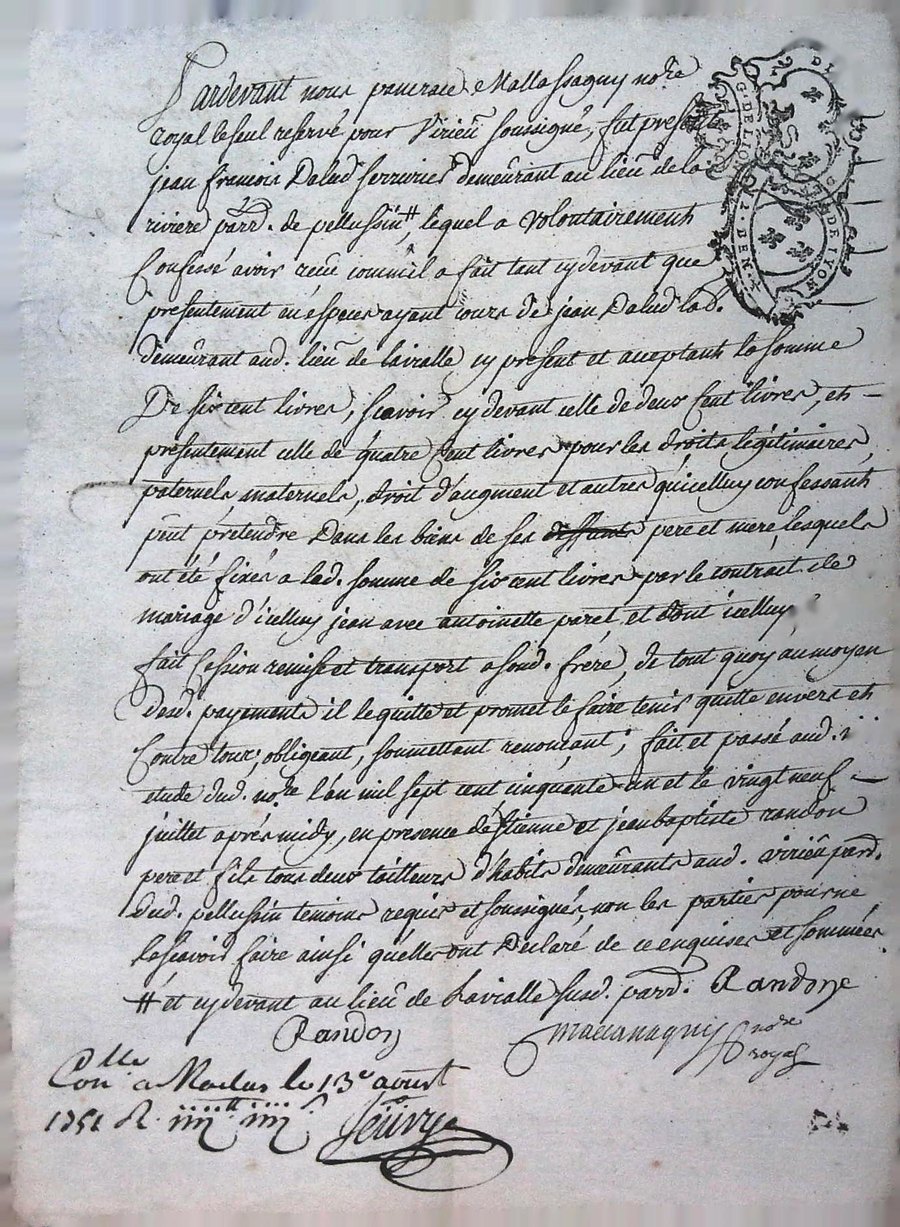 Pardevant nous pancrace Mallassagny no.re
royal le seul reservé pour Virieu soussigné, fut present
jean francois Dalud serrurier demeurant au lieu de la
riviere parr. de pellussin #, lequel a volontairement
Confessé avoir reçu comme il a fait tant cy devant que
presentement en éspeces ayant cours de jean Dalud lab.
demeurant aud. lieu de lavialle cy present et acceptant la somme
De six cent livres, scavoir cy devant celle de deux Cent livres, et
presentement celle de quatre Cent livres pour les droits légitimaires
paternels, maternels, droit d'augment et autres qu'icelluy confessant
peut prétendre Dans les biens de ses deffunts pere et mere, lesquels
ont été fixés a lad. somme de six cent livres par le contrait de
mariage d'icelluy jean avec antoinette paret, et dont icelluy
fait Cession remise et transport a sond. frere, de tout quoy au moyen
desd. payements il le quitte et promet le faire tenir quitte envers et
Contre tous, obligeant, soumettant renonçant, fait et passé aud.
etude dud. no.re l'an mil sept cent cinquante un et le vingt neuf
juillet aprés midy, en presence de étienne et jean baptiste randon
pere et fils tous deux tailleurs d'habits demeurants aud. virieu parr.
dud. pellussin temoins requis et soussignés, non les parties pour ne
le scavoir faire ainsi qu'elles ont Declaré de ce enquises et sommées
# et cy devant au lieu de lavialle susd. parr. Randon
Randon
no.re
royal
Con.lle a Maclas le 13e aoust
1751 R.
GEN. DE LYON